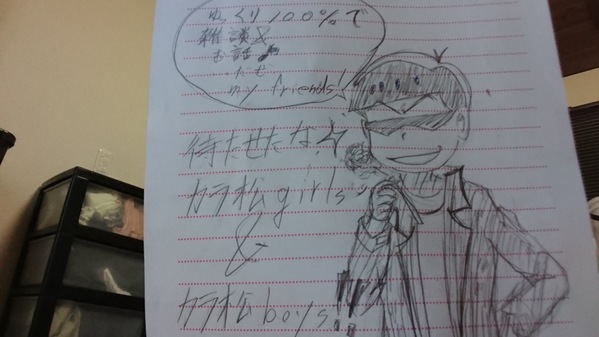 ゆっくり100%で
雑談&
お話
だぜ
my friends!
待たせたな
カラ松girls
&
カラ松boys!!